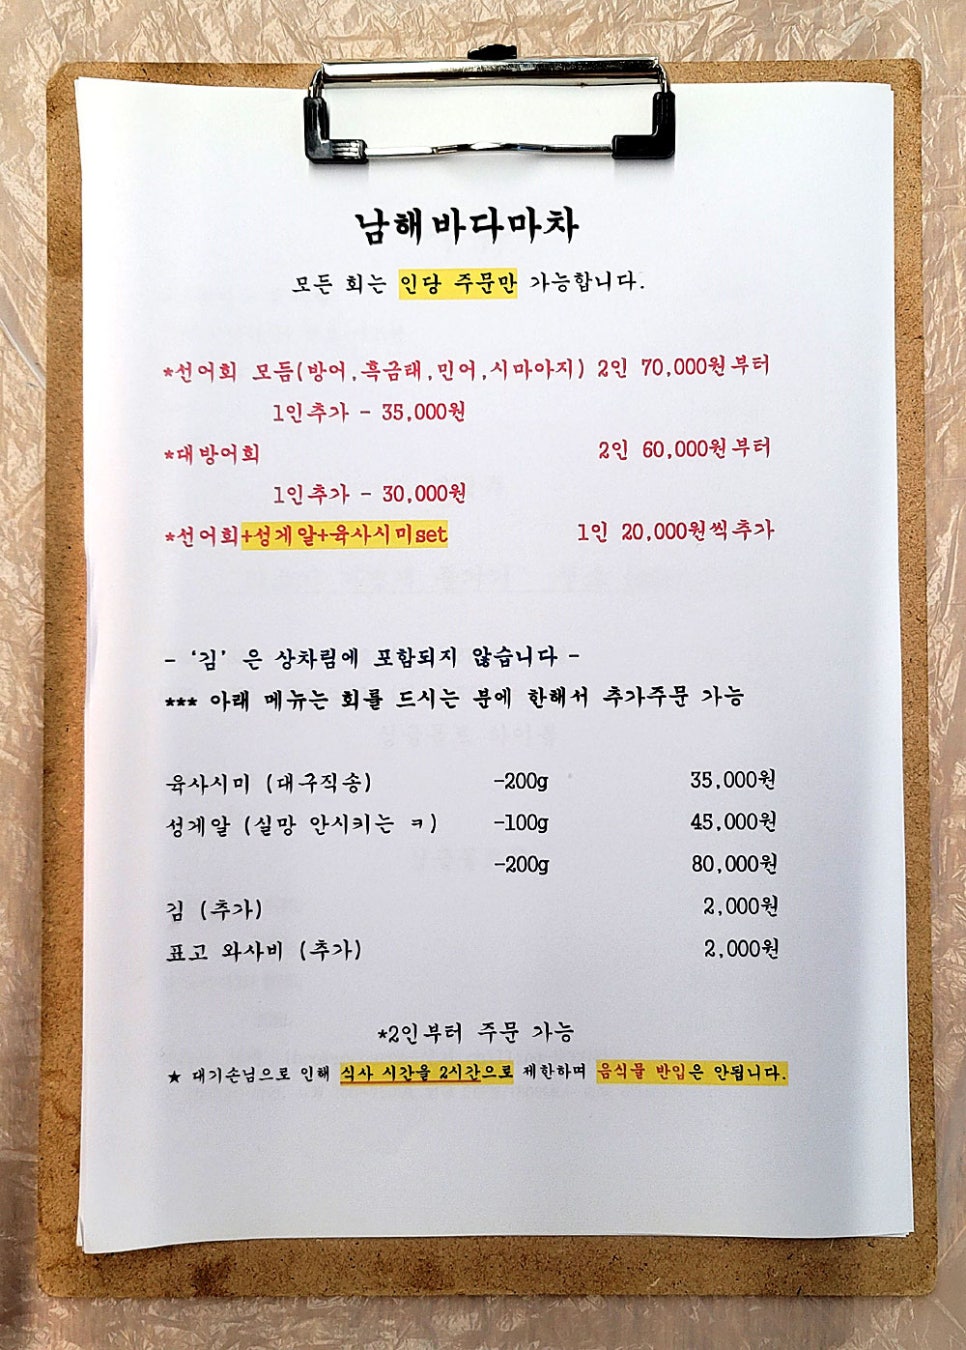 남해바다마차
모든 회는 인당 주문만 가능합니다.
*선어회 모듬(방어,흑금태,민어,시마아지) 2인 70,000원부터
1인추가 - 35,000원
*대방어회 2인 60,000원부터
1인추가 - 30,000원
*선어회+성게알+육사시미set 1인 20,000원씩추가
- '김' 은 상차림에 포함되지 않습니다 -
*** 아래 메뉴는 회를 드시는 분에 한해서 추가주문 가능
육사시미 (대구직송) -200g 35,000원
성게알 (실망 안시키는 ㅋ) -100g 45,000원
-200g 80,000원
김 (추가) 2,000원
표고 와사비 (추가) 2,000원
*2인부터 주문 가능
★ 대기손님으로 인해 식사 시간을 2시간으로 제한하며 음식물 반입은 안됩니다.